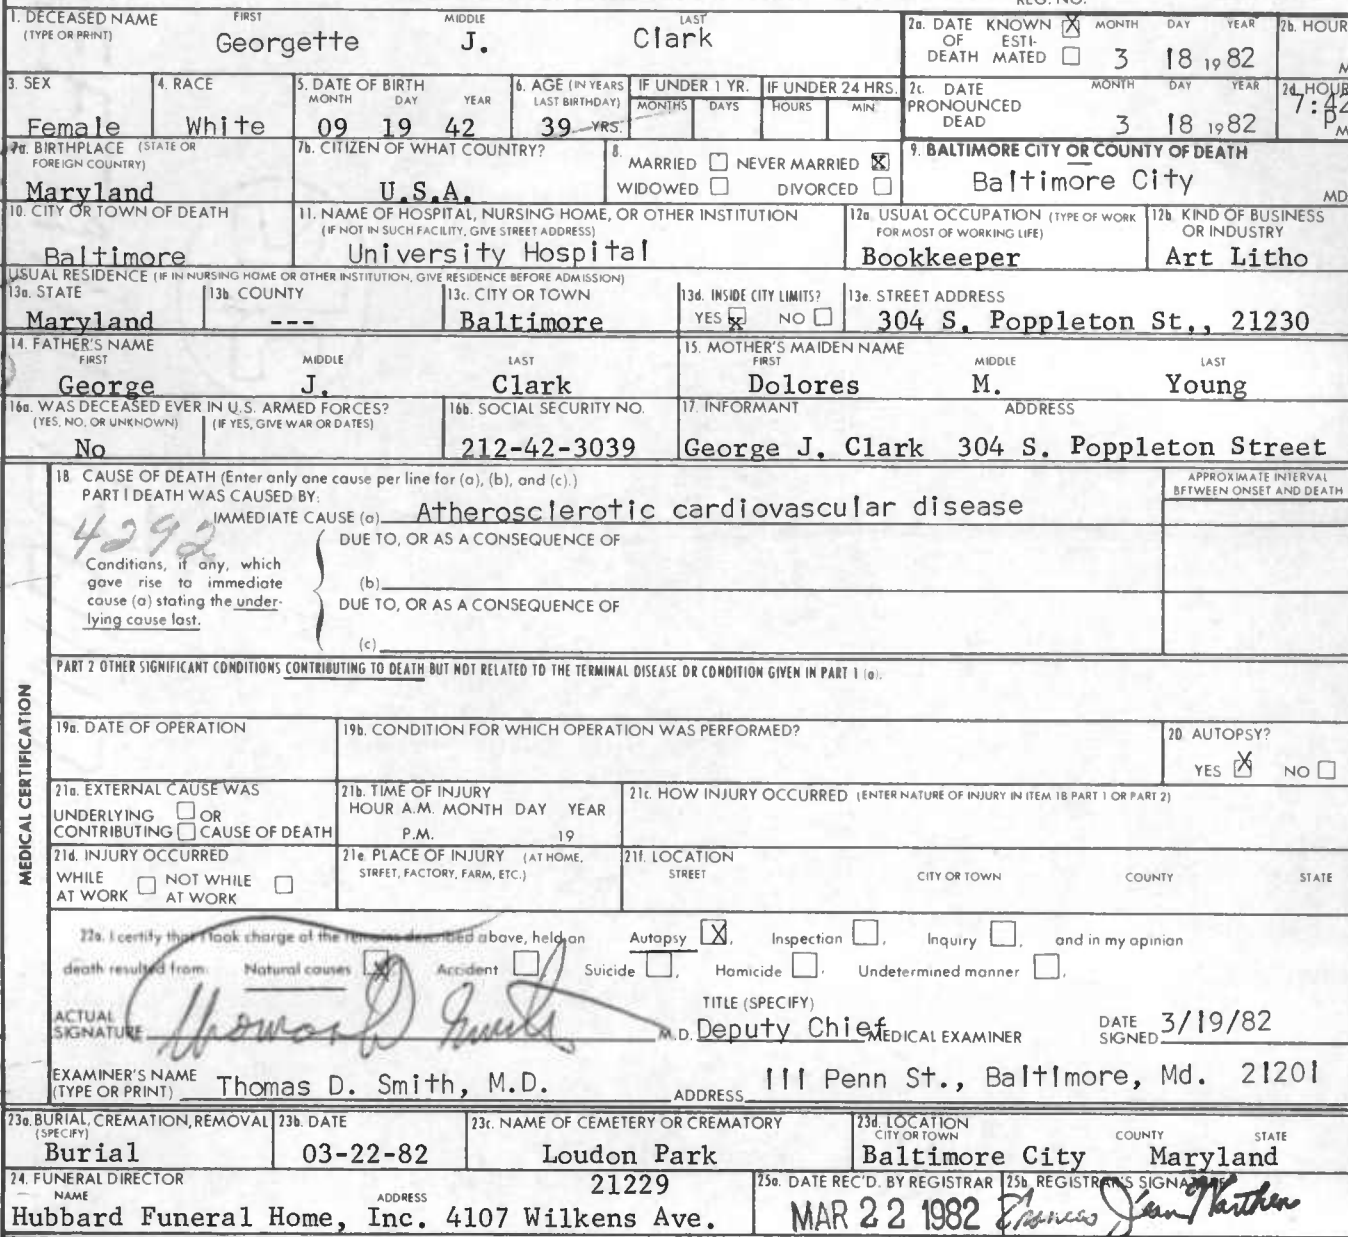 REG. NO.
1. DECEASED NAME FIRST MIDDLE LAST
(TYPE OR PRINT)
Georgette J. Clark
2a. DATE KNOWN X MONTH DAY YEAR
OF ESTI-
DEATH MATED 3 18 1982
2b. HOUR
M
3. SEX
Female
4. RACE
White
5. DATE OF BIRTH
MONTH DAY YEAR
09 19 42
6. AGE (IN YEARS
LAST BIRTHDAY)
39 YRS.
IF UNDER 1 YR.
MONTHS DAYS
IF UNDER 24 HRS.
HOURS MIN.
2c. DATE MONTH DAY YEAR
PRONOUNCED
DEAD 3 18 1982
2d. HOUR
7:42
P M
7a. BIRTHPLACE (STATE OR
FOREIGN COUNTRY)
Maryland
7b. CITIZEN OF WHAT COUNTRY?
U.S.A.
8.
MARRIED NEVER MARRIED X
WIDOWED DIVORCED
9. BALTIMORE CITY OR COUNTY OF DEATH
Baltimore City
MD
10. CITY OR TOWN OF DEATH
Baltimore
11. NAME OF HOSPITAL, NURSING HOME, OR OTHER INSTITUTION
(IF NOT IN SUCH FACILITY, GIVE STREET ADDRESS)
University Hospital
12a. USUAL OCCUPATION (TYPE OF WORK
FOR MOST OF WORKING LIFE)
Bookkeeper
12b. KIND OF BUSINESS
OR INDUSTRY
Art Litho
USUAL RESIDENCE (IF IN NURSING HOME OR OTHER INSTITUTION, GIVE RESIDENCE BEFORE ADMISSION)
13a. STATE
Maryland
13b. COUNTY
---
13c. CITY OR TOWN
Baltimore
13d. INSIDE CITY LIMITS?
YES X NO
13e. STREET ADDRESS
304 S. Poppleton St., 21230
14. FATHER'S NAME
FIRST MIDDLE LAST
George J. Clark
15. MOTHER'S MAIDEN NAME
FIRST MIDDLE LAST
Dolores M. Young
16a. WAS DECEASED EVER IN U.S. ARMED FORCES?
(YES, NO, OR UNKNOWN) (IF YES, GIVE WAR OR DATES)
No
16b. SOCIAL SECURITY NO.
212-42-3039
17. INFORMANT ADDRESS
George J. Clark 304 S. Poppleton Street
MEDICAL CERTIFICATION
18. CAUSE OF DEATH (Enter only one cause per line for (a), (b), and (c).)
PART I DEATH WAS CAUSED BY:
IMMEDIATE CAUSE (a) Atherosclerotic cardiovascular disease
APPROXIMATE INTERVAL
BETWEEN ONSET AND DEATH
4292
DUE TO, OR AS A CONSEQUENCE OF
Conditions, if any, which
gave rise to immediate
cause (a) stating the under-
lying cause last.
(b)
DUE TO, OR AS A CONSEQUENCE OF
(c)
PART 2 OTHER SIGNIFICANT CONDITIONS CONTRIBUTING TO DEATH BUT NOT RELATED TO THE TERMINAL DISEASE OR CONDITION GIVEN IN PART 1 (a).
19a. DATE OF OPERATION
19b. CONDITION FOR WHICH OPERATION WAS PERFORMED?
20. AUTOPSY?
YES X NO
21a. EXTERNAL CAUSE WAS
UNDERLYING OR
CONTRIBUTING CAUSE OF DEATH
21b. TIME OF INJURY
HOUR A.M. MONTH DAY YEAR
P.M. 19
21c. HOW INJURY OCCURRED (ENTER NATURE OF INJURY IN ITEM 18 PART 1 OR PART 2)
21d. INJURY OCCURRED
WHILE NOT WHILE
AT WORK AT WORK
21e. PLACE OF INJURY (AT HOME,
STREET, FACTORY, FARM, ETC.)
21f. LOCATION
STREET CITY OR TOWN COUNTY STATE
22a. I certify that I took charge of the remains described above, held an Autopsy X, Inspection , Inquiry , and in my opinion
death resulted from: Natural causes X Accident Suicide , Homicide . Undetermined manner .
ACTUAL
SIGNATURE Thomas D Smith M.D.
TITLE (SPECIFY)
Deputy Chief MEDICAL EXAMINER
DATE
SIGNED 3/19/82
EXAMINER'S NAME
(TYPE OR PRINT) Thomas D. Smith, M.D.
ADDRESS 111 Penn St., Baltimore, Md. 21201
23a. BURIAL, CREMATION, REMOVAL
(SPECIFY)
Burial
23b. DATE
03-22-82
23c. NAME OF CEMETERY OR CREMATORY
Loudon Park
23d. LOCATION
CITY OR TOWN COUNTY STATE
Baltimore City Maryland
24. FUNERAL DIRECTOR
NAME ADDRESS
21229
Hubbard Funeral Home, Inc. 4107 Wilkens Ave.
25a. DATE REC'D. BY REGISTRAR
MAR 22 1982
25b. REGISTRAR'S SIGNATURE
Frances Jean Warthen